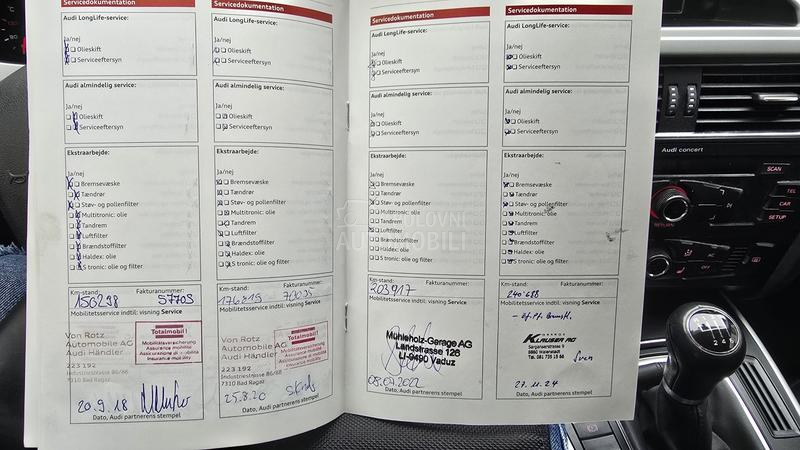 Servicedokumentation
Audi LongLife-service:
Ja/nej
Olieskift
Serviceeftersyn
Audi almindelig service:
Ja/nej
Olieskift
Serviceeftersyn
Ekstraarbejde:
Ja/nej
Bremsevæske
Tændrør
Støv- og pollenfilter
Multitronic: olie
Tandrem
Luftfilter
Brændstoffilter
Haldex: olie
S tronic: olie og filter
Km-stand: Fakturanummer:
150298 57703
Mobilitetsservice indtil: visning Service
Von Rotz
Automobile AG
Audi Händler
223 192
Industriestrasse 86/88
7310 Bad Ragaz
Totalmobil!
Mobilitätsversicherung
Assurance mobilité
Assicurazione di mobilità
Insurance mobility
20.9.18
Dato, Audi partnerens stempel
Servicedokumentation
Audi LongLife-service:
Ja/nej
Olieskift
Serviceeftersyn
Audi almindelig service:
Ja/nej
Olieskift
Serviceeftersyn
Ekstraarbejde:
Ja/nej
Bremsevæske
Tændrør
Støv- og pollenfilter
Multitronic: olie
Tandrem
Luftfilter
Brændstoffilter
Haldex: olie
S tronic: olie og filter
Km-stand: Fakturanummer:
176815 70035
Mobilitetsservice indtil: visning Service
Von Rotz
Automobile AG
Audi Händler
223 192
Industriestrasse 86/88
7310 Bad Ragaz
Totalmobil!
Mobilitätsversicherung
Assurance mobilité
Assicurazione di mobilità
Insurance mobility
25.8.20
Dato, Audi partnerens stempel
Servicedokumentation
Audi LongLife-service:
Ja/nej
Olieskift
Serviceeftersyn
Audi almindelig service:
Ja/nej
Olieskift
Serviceeftersyn
Ekstraarbejde:
Ja/nej
Bremsevæske
Tændrør
Støv- og pollenfilter
Multitronic: olie
Tandrem
Luftfilter
Brændstoffilter
Haldex: olie
S tronic: olie og filter
Km-stand: Fakturanummer:
203917
Mobilitetsservice indtil: visning Service
Mühleholz-Garage AG
Landstrasse 126
LI-9490 Vaduz
08.07.2022
Dato, Audi partnerens stempel
Servicedokumentation
Audi LongLife-service:
Ja/nej
Olieskift
Serviceeftersyn
Audi almindelig service:
Ja/nej
Olieskift
Serviceeftersyn
Ekstraarbejde:
Ja/nej
Bremsevæske
Tændrør
Støv- og pollenfilter
Multitronic: olie
Tandrem
Luftfilter
Brændstoffilter
Haldex: olie
S tronic: olie og filter
Km-stand: Fakturanummer:
240'688
Mobilitetsservice indtil: visning Service
GARAGE
KLAUSER AG
Sarganserstrasse
8880 Walenstadt
Tel. 081 735 15 66
Sven
27.11.24
Dato, Audi partnerens stempel
POLOVNI
AUTOMOBILI
Audi concert
SCAN
TEL
CAR
SETUP
RETURN
OFF